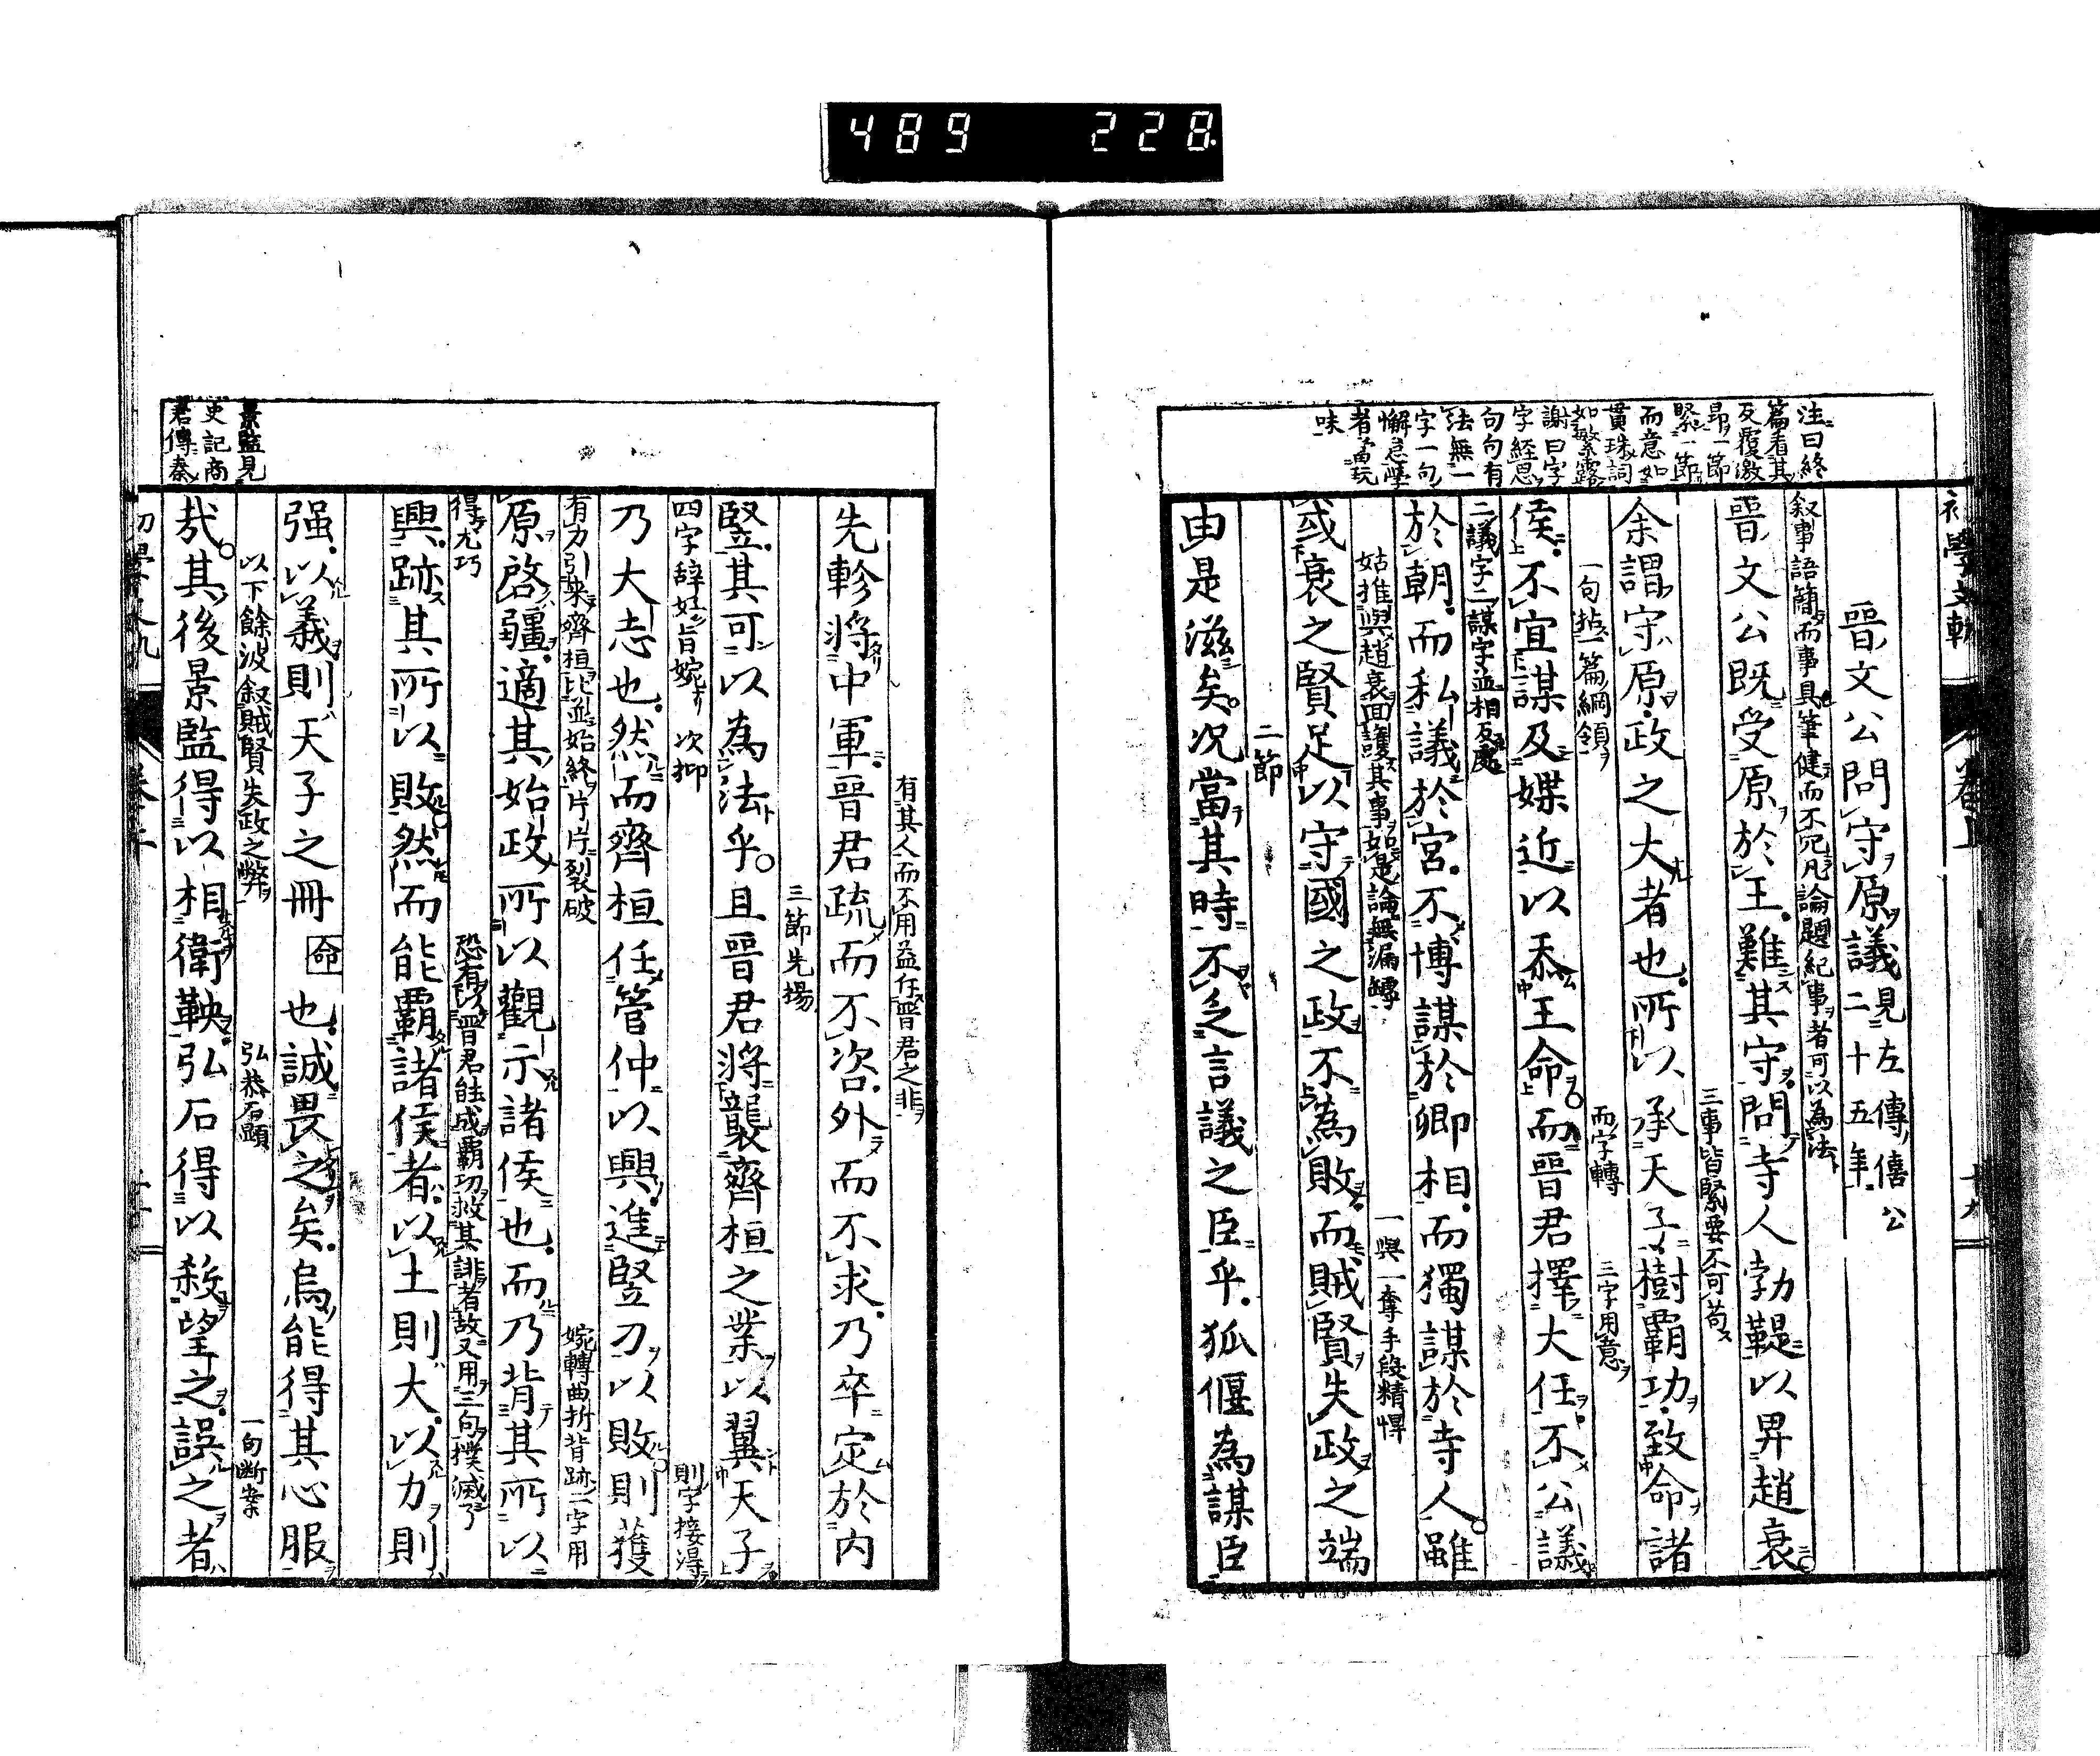 489 228
注曰終
篇看其
反覆激
昂一節
緊一節
而意如
貫珠詞
如繁露
謝曰字
字經思
句句有
法無一
字一句
懈怠學
者當玩
味
晉文公問守原議見左傳僖公
二十五年
叙事語簡而事具筆健而不冗凡論題紀事者可以為法
晉文公既受原於王難其守問寺人勃鞮以畀趙衰
三事皆緊要不可苟
余謂守原政之大者也所以承天子樹霸功致命諸
一句拈一篇綱領 而字轉 三字用意
侯不宜謀及媟近以忝王命而晉君擇大任不公議
二議字二謀字並相反處
於朝而私議於宮不博謀於卿相而獨謀於寺人雖
姑推與趙衰回護其事如是論無漏罅 一與一奪手段精悍
或衰之賢足以守國之政不為敗而賊賢失政之端
二節
由是滋矣况當其時不乏言議之臣乎狐偃為謀臣
有其人而不用益任晉君之非
先軫将中軍晉君疏而不咨外而不求乃卒定於内
三節先揚
竪其可以為法乎且晉君將襲齊桓之業以翼天子
四字辞妊旨婉 次抑 則字接得
乃大志也然而齊桓任管仲以興進竪刀以敗則獲
有力引来齊桓比並始終片片裂破 婉轉曲折背跡二字用
原啓疆適其始政所以觀示諸侯也而乃背其所以
得尤巧 恐有以晉君能成覇功救其誹者故又用三句撲滅了
興跡其所以敗然而能霸諸侯者以土則大以力則
强以義則天子之冊命也誠畏之矣烏能得其心服
以下餘波叙賊賢失政之弊 弘恭石顯 一句断案
哉其後景監得以相衛鞅弘石得以殺望之誤之者
景監見
史記商
君傳秦